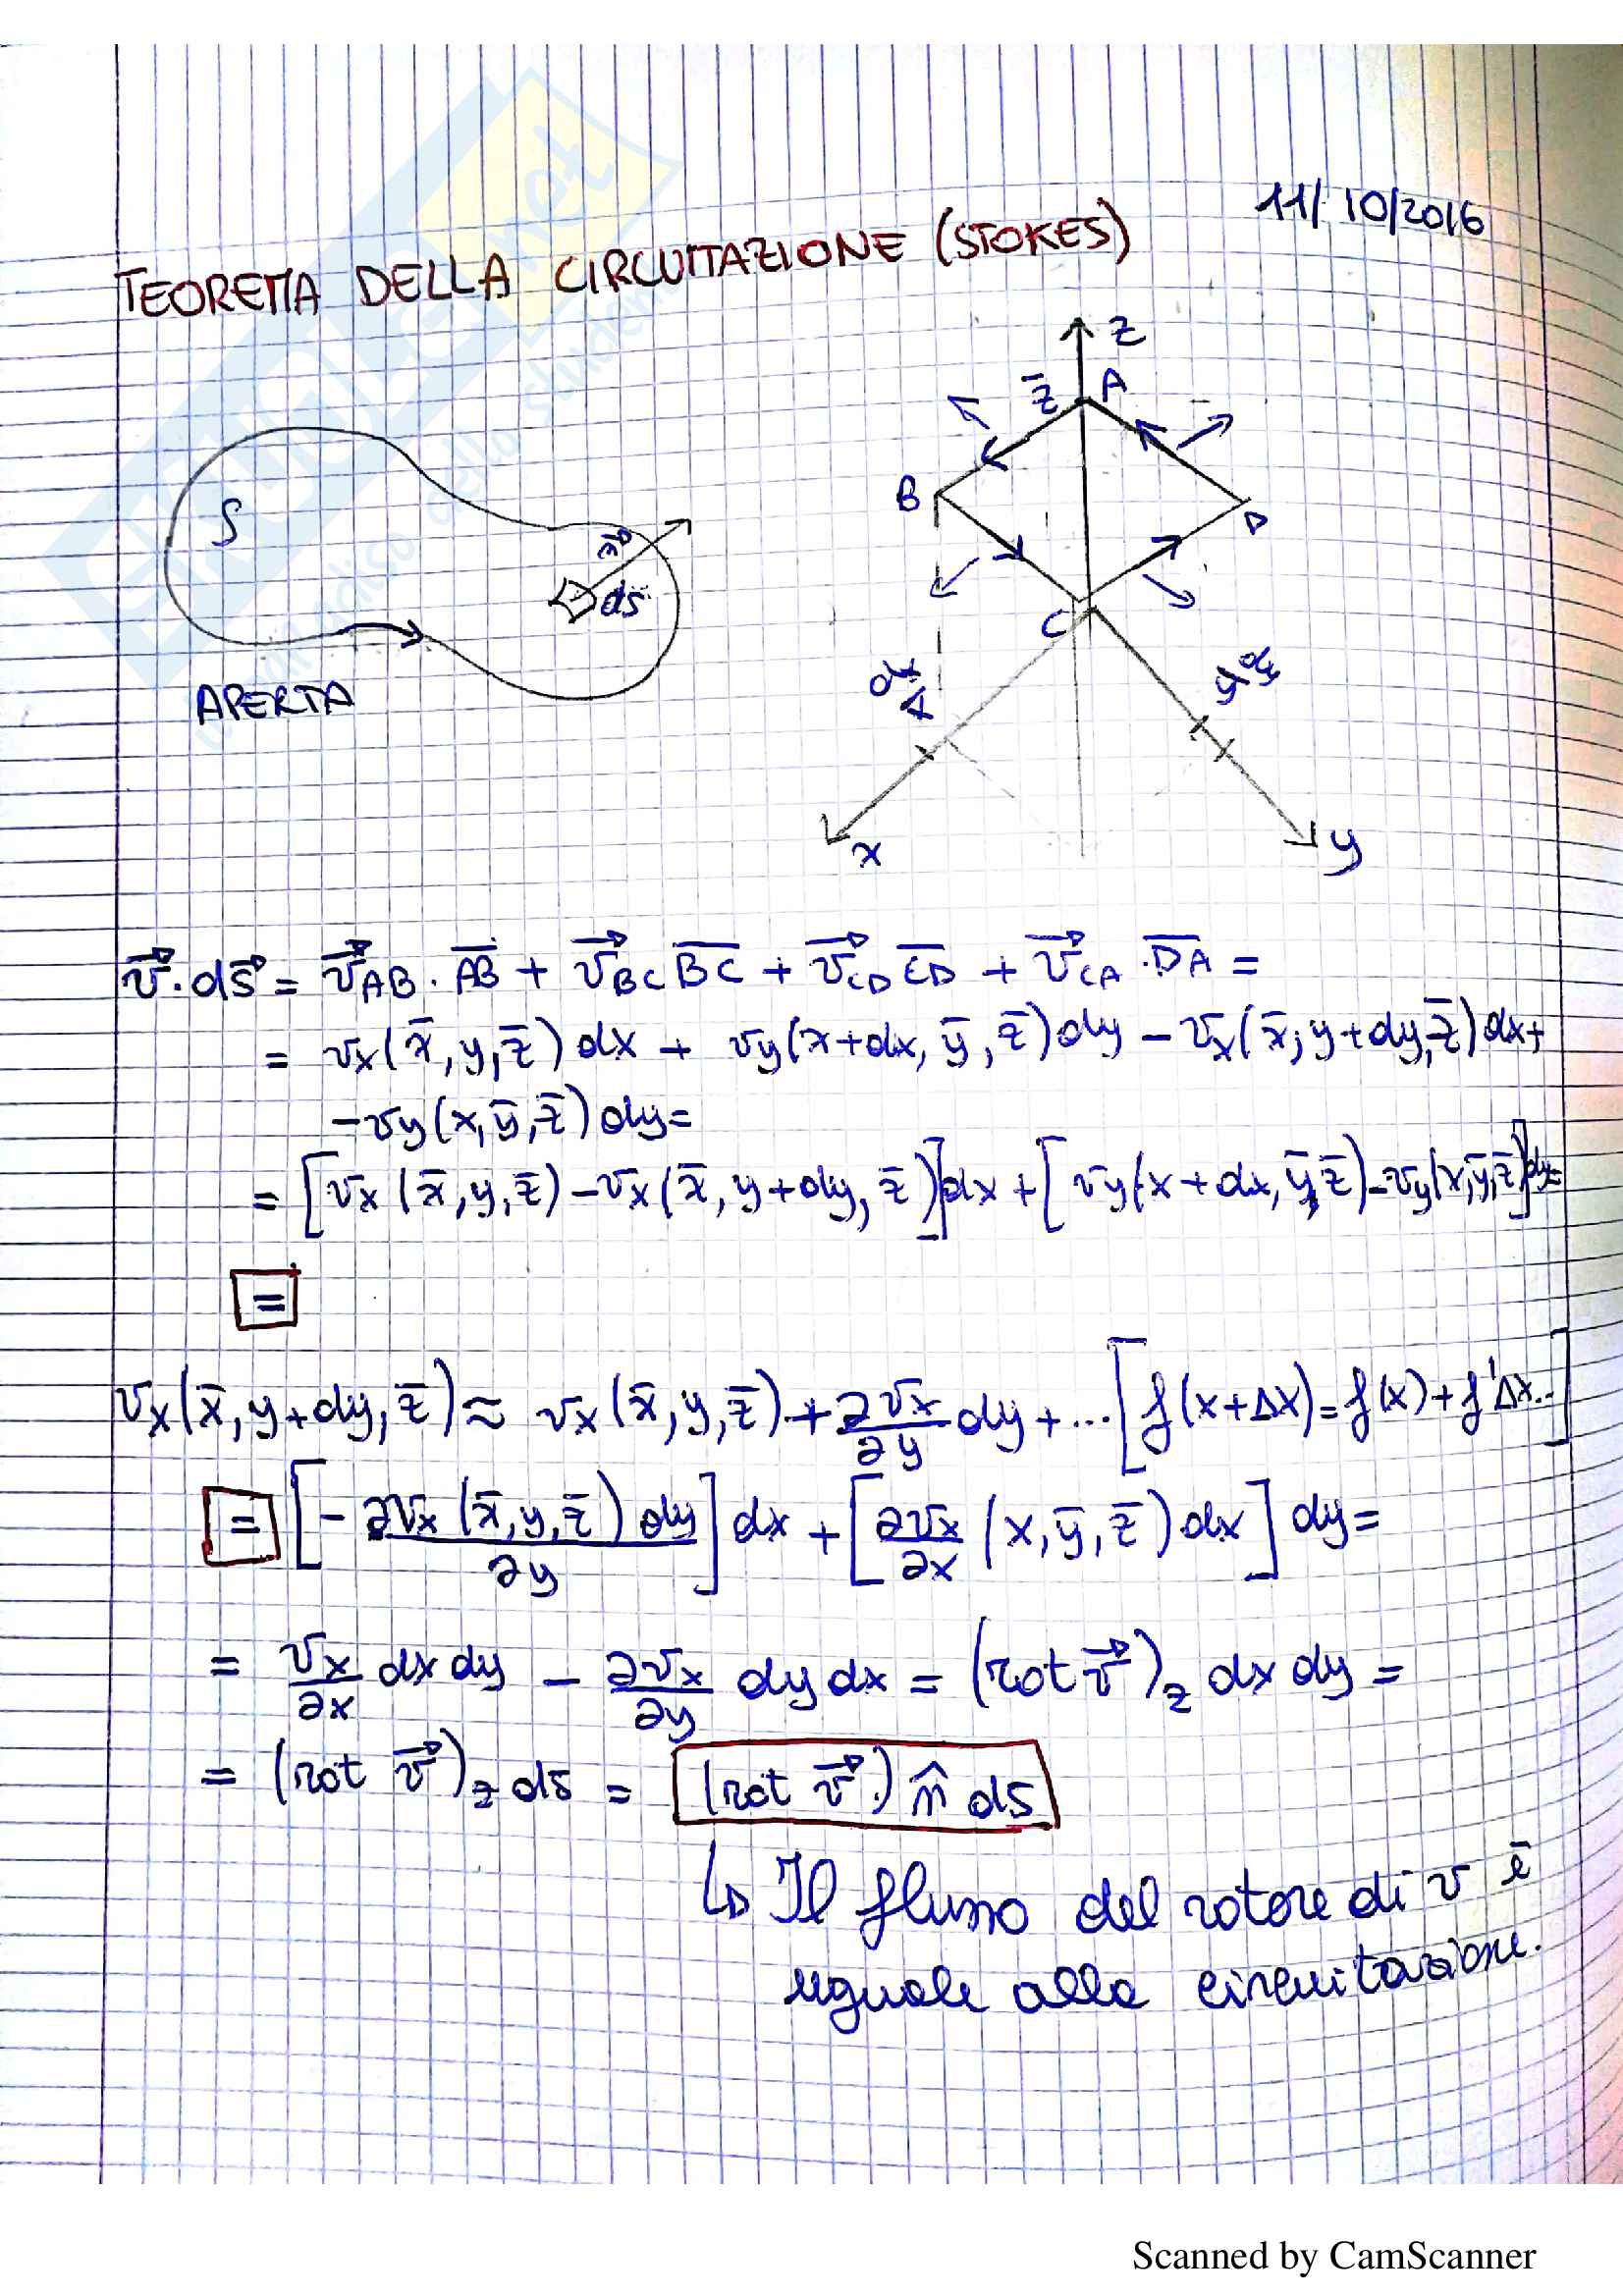 11/10/2016
TEOREMA DELLA CIRCUITAZIONE (STOKES)
z
z̄ A
S
B
D
n⃗
ds
C
APERTA
dx
y dy
x
y
v⃗·ds⃗ = v⃗_AB · A̅B̅ + v⃗_BC B̅C̅ + v⃗_CD C̅D̅ + v⃗_CA · D̅A̅ =
= vx(x̄, y, z̄) dx + vy(x+dx, ȳ, z̄) dy - vx(x̄, y+dy, z̄) dx +
- vy(x, ȳ, z̄) dy =
= [vx(x̄, y, z̄) - vx(x̄, y+dy, z̄)] dx + [vy(x+dx, ȳ, z̄) - vy(x, ȳ, z̄)] dy =
=
vx(x̄, y+dy, z̄) ≈ vx(x̄, y, z̄) + ∂vx/∂y dy + ... [f(x+Δx) = f(x) + f'Δx...]
= [-∂vx(x̄, y, z̄) dy/∂y] dx + [∂vx/∂x (x, ȳ, z̄) dx] dy =
= vx/∂x dx dy - ∂vx/∂y dy dx = (rot v⃗)z dx dy =
= (rot v⃗)z ds = (rot v⃗·) n̂ ds
↳ Il flusso del rotore di v è
uguale alla circuitazione.
Scanned by CamScanner